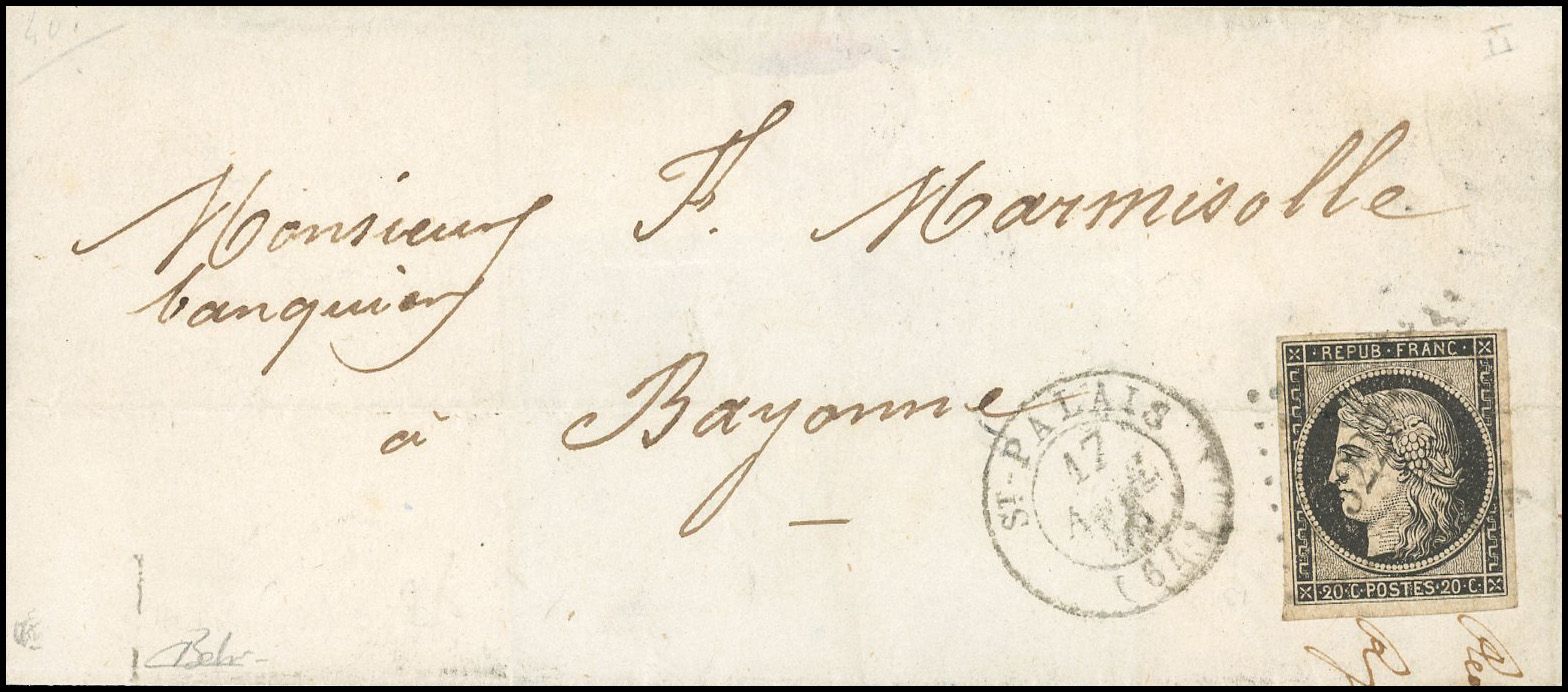 Monsieur F. Marmisolle
banquier
à Bayonne
ST-PALAIS
17
(64)
REPUB·FRANC·
20·C·POSTES·20·C·
Behr